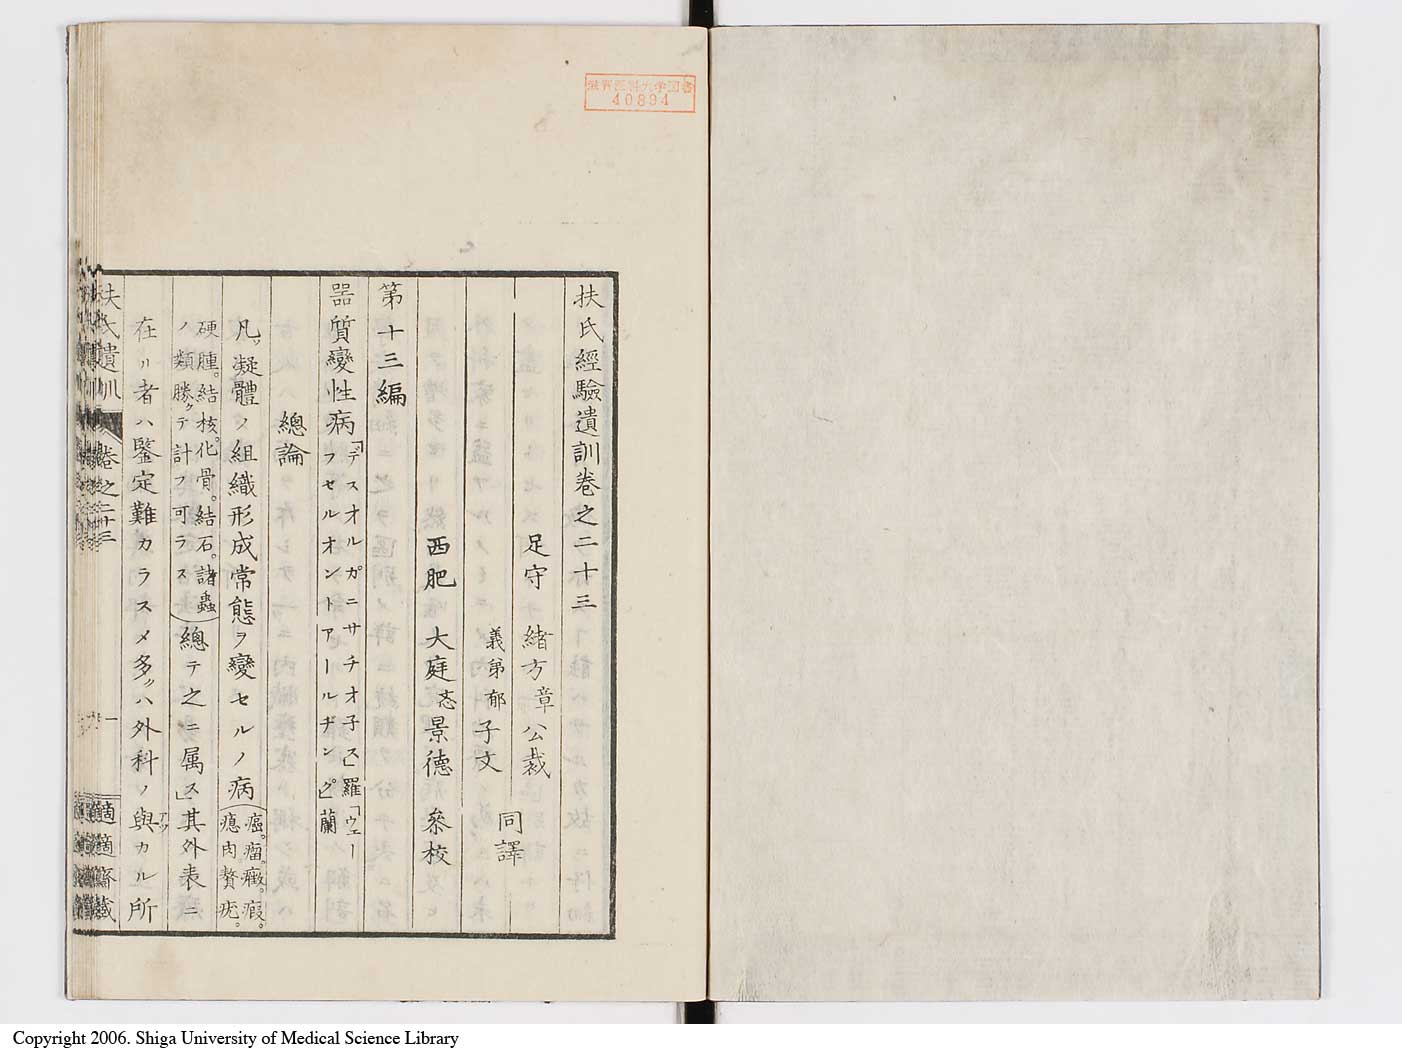 滋賀医科大学図書
40894
扶氏經驗遺訓卷之二十三
足守 緒方章公裁
義弟郁子文 同譯
西肥 大庭忞景德 參校
第十三編
器質變性病「デスオルガニサチオ子ス」羅「ウェーフセルオントアールヂンゲ」蘭
總論
凡ッ凝體ノ組織形成常態ヲ變セルノ病(癌。瘤。癥。瘕。瘜肉。贅疣。
硬腫。結核。化骨。結石。諸蟲ノ類勝ケテ計フ可ラス)總テ之ニ属ス」其外表ニ
在リ者ハ鑒定難カラスメ多クハ外科ノ與カル所
扶氏遺訓 卷之二十三 一 適適齋藏
Copyright 2006. Shiga University of Medical Science Library